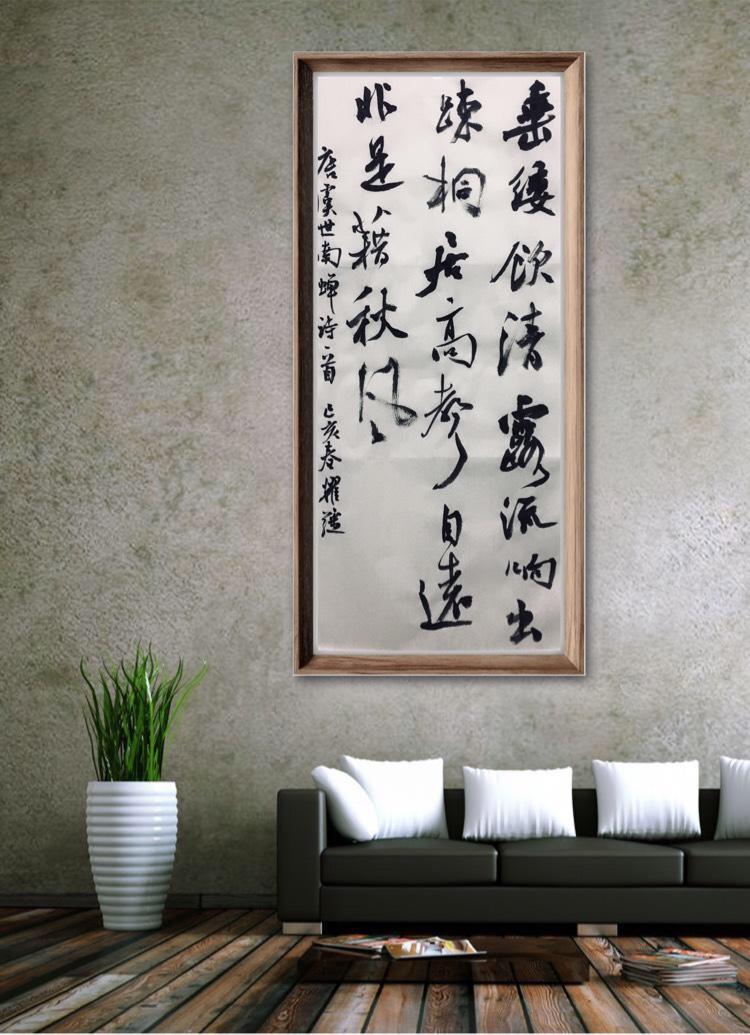 垂緌飲清露流响出
踈桐居高聲自遠
非是藉秋风
唐虞世南蝉诗一首 己亥春耀